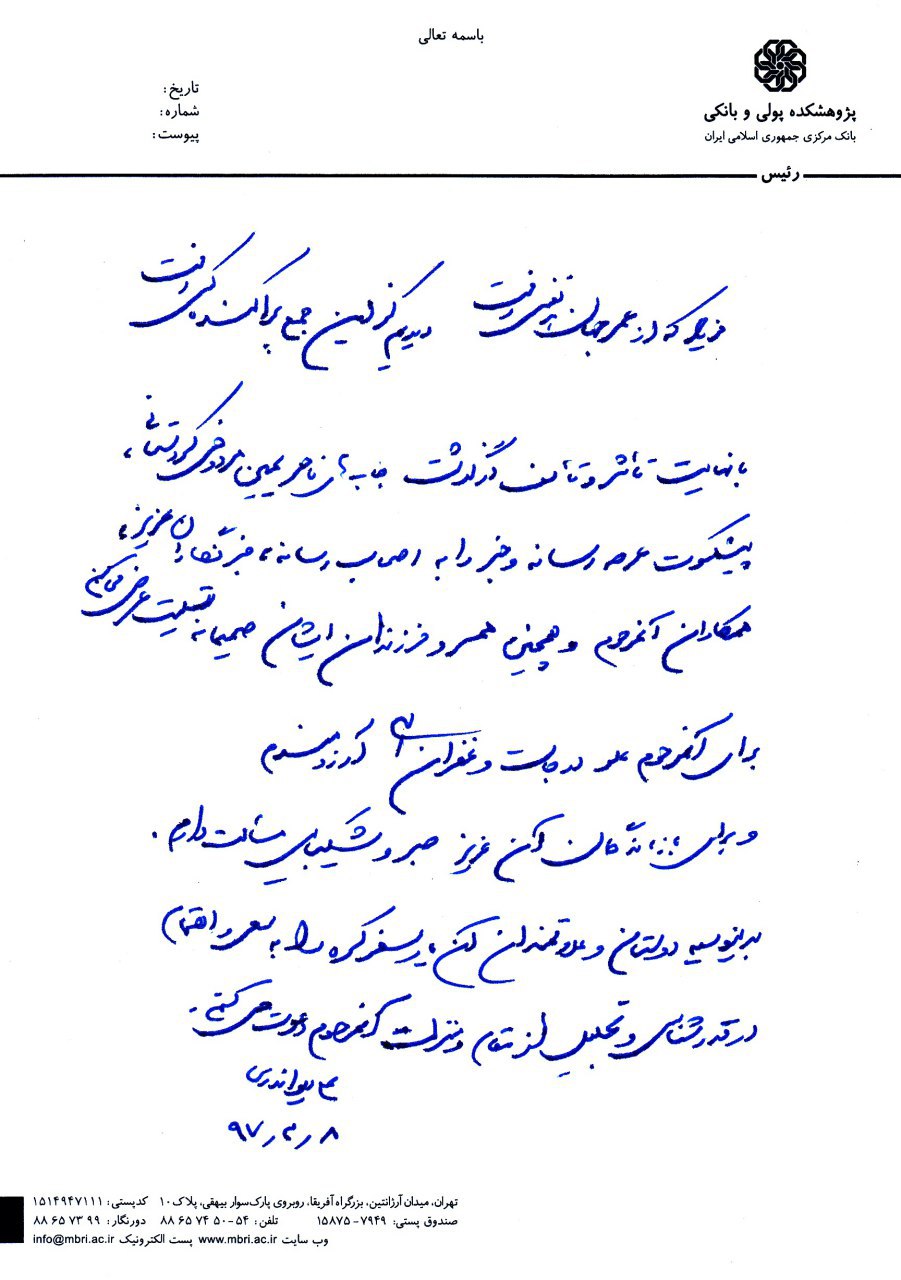 باسمه تعالی
پژوهشکده پولی و بانکی
بانک مرکزی جمهوری اسلامی ایران
تاریخ:
شماره:
پیوست:
رئیس
که از عمر جهان نفسی رفت دیدیم کزین جمع پراکنده کسی رفت
با نهایت تأثر و تأسف درگذشت جناب آقای ناصر یمین مردوخی کردستانی،
پیشکسوت عرصه رسانه و خبر را به اصحاب رسانه، خبرنگاران عزیز،
همکاران آنمرحوم و همچنین همسر و فرزندان ایشان صمیمانه تسلیت عرض می‌کنم
برای آنمرحوم علو درجات و غفران الهی آرزومندم
و برای بازماندگان آن عزیز صبر و شکیبایی مسألت دارم.
بدینوسیله دوستان و علاقمندان آن یار سفر کرده را به سعی و اهتمام
در قدرشناسی و تجلیل از مقام و منزلت آنمرحوم دعوت می‌کنم.
علی دیواندری
۹۷٫۳٫۸
تهران، میدان آرژانتین، بزرگراه آفریقا، روبروی پارک‌سوار بیهقی، پلاک ۱۰ کدپستی: ۱۵۱۴۹۴۷۱۱۱
صندوق پستی: ۷۹۴۹-۱۵۸۷۵ تلفن: ۵۴-۵۰ ۷۴ ۶۵ ۸۸ دورنگار: ۹۹ ۷۳ ۶۵ ۸۸
وب سایت www.mbri.ac.ir پست الکترونیک info@mbri.ac.ir